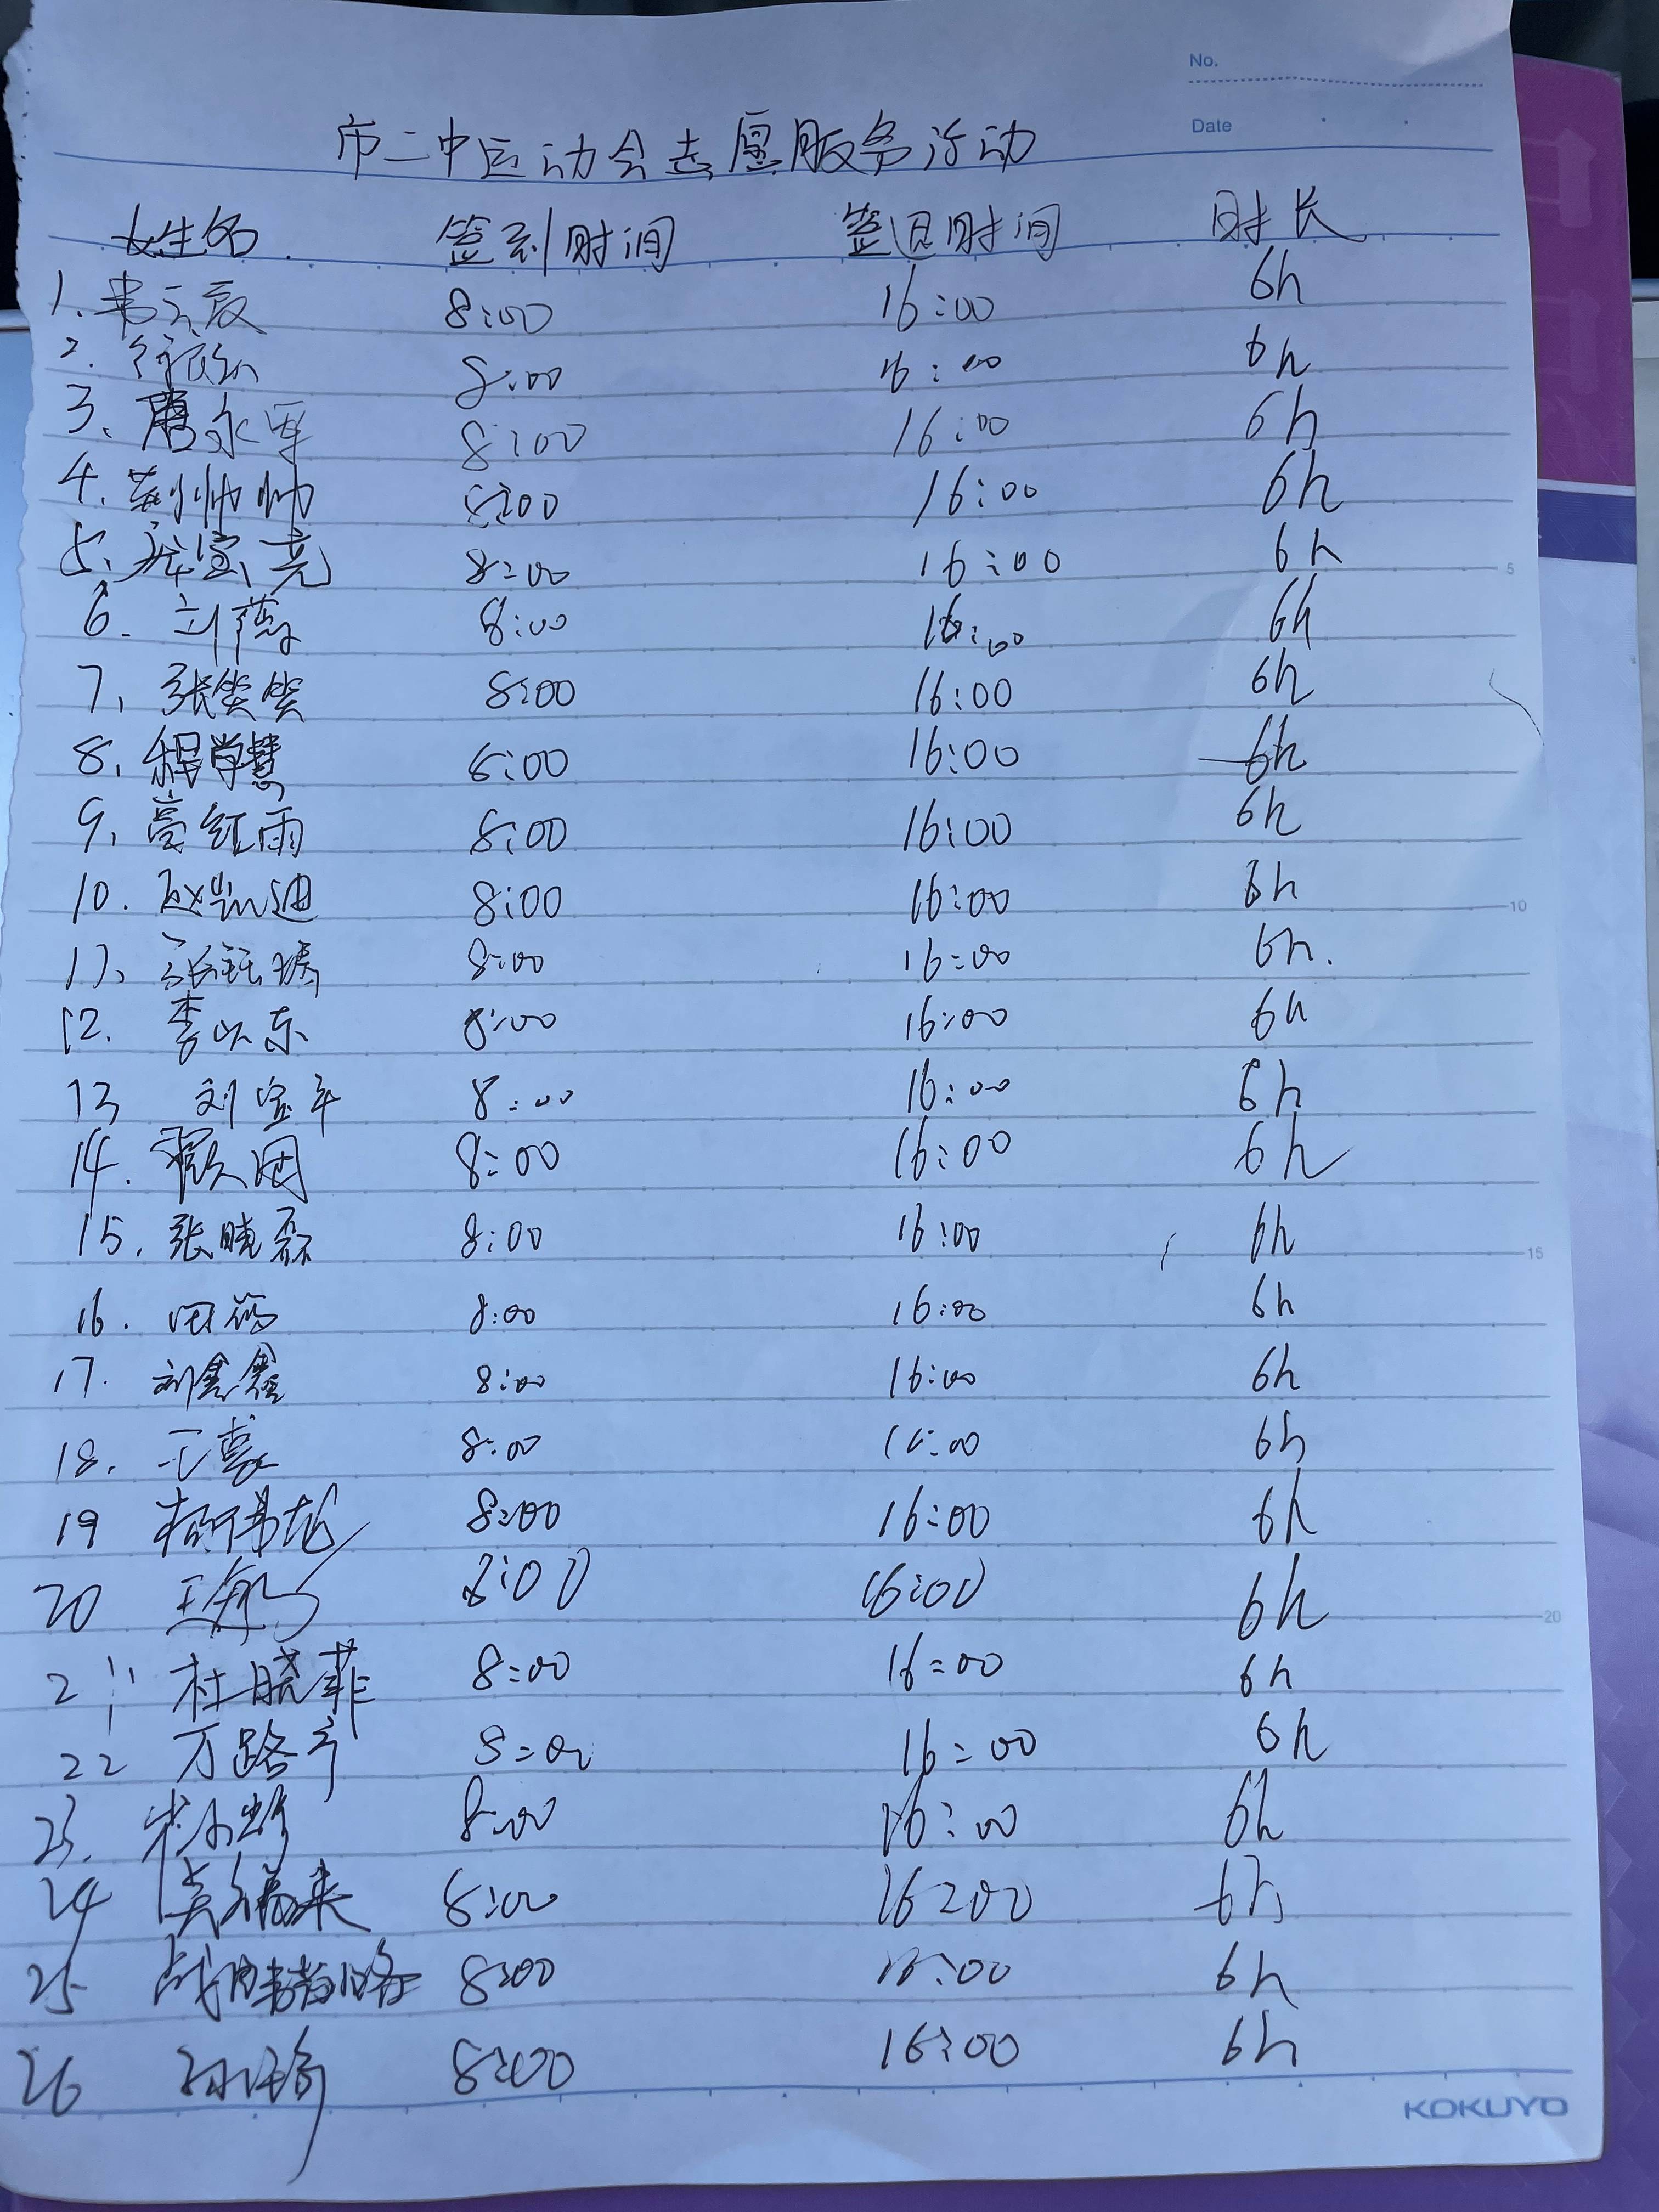 No.
Date
市二中运动会志愿服务活动
姓名 签到时间 签退时间 时长
1. 8:00 16:00 6h
2. 徐 8:00 16:00 6h
3. 唐永军 8:00 16:00 6h
4. 荆帅帅 8:00 16:00 6h
5. 宝亮 8:00 16:00 6h
6. 刘 8:00 16:00 6h
7. 张笑笑 8:00 16:00 6h
8. 程肖慧 8:00 16:00 6h
9. 高红雨 8:00 16:00 6h
10. 赵凯迪 8:00 16:00 6h
11. 张钰 8:00 16:00 6h.
12. 李 东 8:00 16:00 6h
13 刘宝军 8:00 16:00 6h
14. 8:00 16:00 6h
15. 张晓磊 8:00 16:00 6h
16. 田 8:00 16:00 6h
17. 刘鑫鑫 8:00 16:00 6h
18. 王 8:00 16:00 6h
19 8:00 16:00 6h
20 王海 8:00 16:00 6h
21 杜晓菲 8:00 16:00 6h
22 万路 8:00 16:00 6h
23. 8:00 16:00 6h
24 8:00 16:00 6h
25 8:00 16:00 6h
26 8:00 16:00 6h
5
10
15
20
KOKUYO